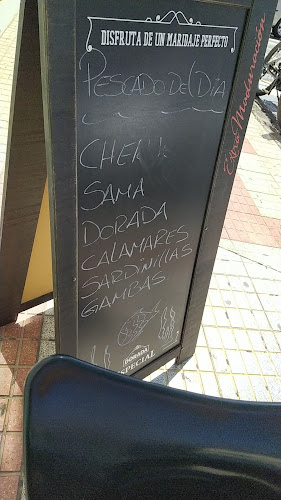 DISFRUTA DE UN MARIDAJE PERFECTO
PESCADO DEL DÍA
CHERNE
SAMA
DORADA
CALAMARES
SARDINILLAS
GAMBAS
DORADA
ESPECIAL
Extra Maduración